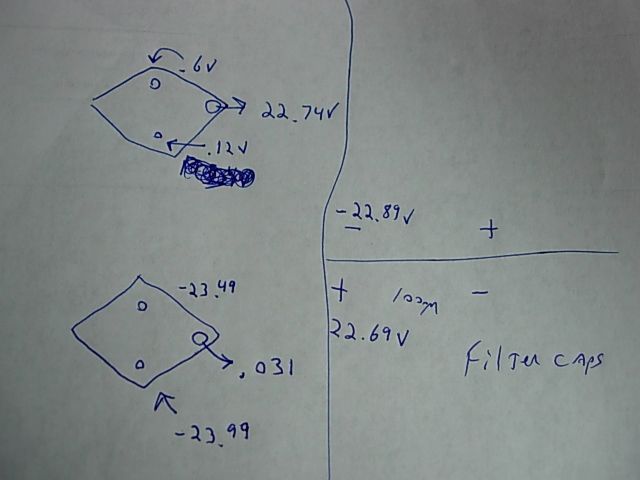 .6V
22.74V
.12V
-23.49
.031
-23.99
-22.89V
- +
+ -
22.69V
Filter caps